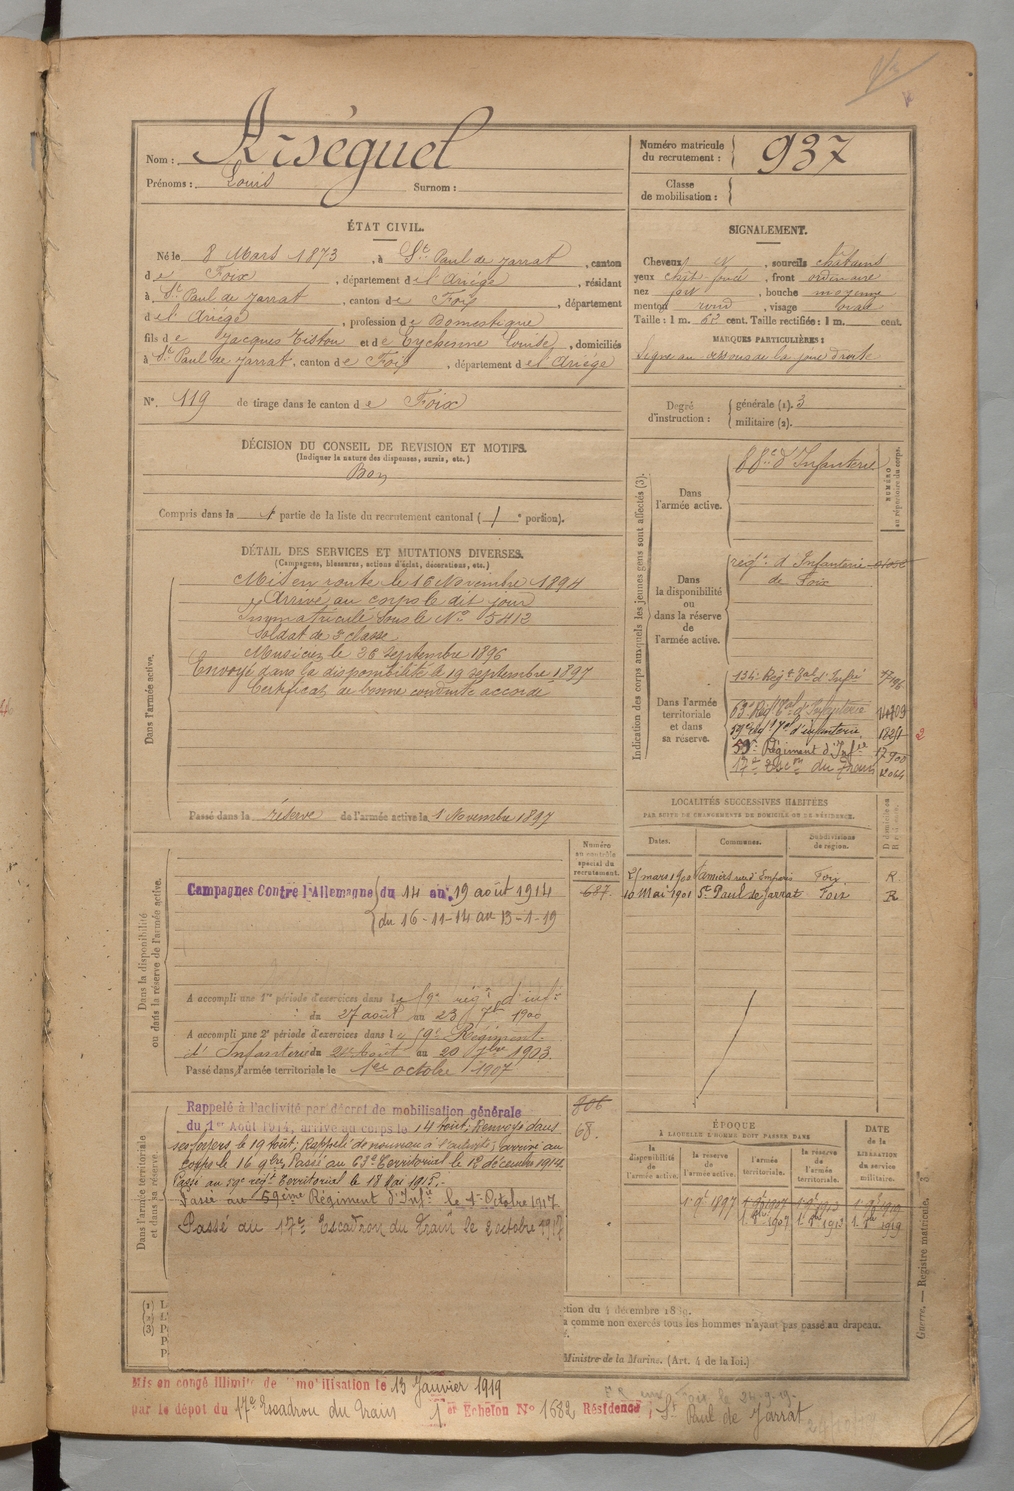 Nom : Arséguel
Prénoms : Louis Surnom :
Numéro matricule du recrutement : 937
Classe de mobilisation :
ÉTAT CIVIL.
Né le 8 Mars 1873, à St Paul de Jarrat, canton
de Foix, département de l'Ariège, résidant
à St Paul de Jarrat, canton de Foix, département
de l'Ariège, profession de Domestique
fils de Jacques Tiston et de Eychenne Louise, domiciliés
à St Paul de Jarrat, canton de Foix, département de l'Ariège
N°. 119 de tirage dans le canton de Foix
SIGNALEMENT.
Cheveux N, sourcils châtains
yeux chât. foncé, front ordinaire
nez , bouche moyenne
menton rond, visage ovale
Taille : 1 m. cent. Taille rectifiée : 1 m. cent.
MARQUES PARTICULIÈRES :
Signe au dessous de la joue droite
Degré d'instruction : générale (1). 3
militaire (2).
DÉCISION DU CONSEIL DE REVISION ET MOTIFS.
(Indiquer la nature des dispenses, sursis, etc.)
Bon
Compris dans la 1 partie de la liste du recrutement cantonal ( 1 e portion).
DÉTAIL DES SERVICES ET MUTATIONS DIVERSES.
(Campagnes, blessures, actions d'éclat, décorations, etc.)
Dans l'armée active.
Mis en route le 16 Novembre 1894
Arrivé au corps le dit jour
Immatriculé sous le No 5412
Soldat de 2e classe
Musicien le 26 Septembre 1896
Envoyé dans la disponibilité le 19 septembre 1897
Certificat de bonne conduite accordé
Passé dans la réserve de l'armée active le 1 Novembre 1897
Indication des corps auxquels les jeunes gens sont affectés (3).
NUMÉRO au répertoire du corps.
Dans l'armée active.
88e d'Infanterie
Dans la disponibilité ou dans la réserve de l'armée active.
régt d'Infanterie
de Foix
Dans l'armée territoriale et dans sa réserve.
134e Régt tal d'Infie
63e Régt tal d'Infanterie 14709
59e Régt tal d'infanterie. 1824
2
59e Régiment d'Infie 17900
17e Escon du Train 12064
LOCALITÉS SUCCESSIVES HABITÉES
PAR SUITE DE CHANGEMENTS DE DOMICILE OU DE RÉSIDENCE.
Dates. Communes. Subdivisions de région. D domicile ou R résidence.
mars 1900 Pamiers Foix. R.
10 Mai 1901 St Paul de Jarrat Foix R
Dans la disponibilité ou dans la réserve de l'armée active.
Numéro au contrôle spécial du recrutement.
687.
Campagnes Contre l'Allemagne du 14 au 19 août 1914
du 16-11-14 au 13-1-19
A accompli une 1re période d'exercices dans le 59e régt d'infie
du 27 août au 23 7bre 1900
A accompli une 2e période d'exercices dans le 59e Régiment
d'Infanterie du 24 Août au 20 7bre 1903.
Passé dans l'armée territoriale le 1er octobre 1907
Dans l'armée territoriale et dans sa réserve.
806
68.
Rappelé à l'activité par décret de mobilisation générale
du 1er Août 1914, arrivé au corps le 14 Août; Renvoyé dans
ses foyers le 19 Août; Rappelé de nouveau à l'activité; arrivé au
corps le 16 9bre, Passé au 63e Territorial le 12 décembre 1914.
Passé au 59e régt Territorial le 18 Mai 1915.
Passé au 59ème Régiment d'Infie le 1er Octobre 1917
Passé au 17e Escadron du Train le 2 octobre 1917
ÉPOQUE
À LAQUELLE L'HOMME DOIT PASSER DANS
DATE de la LIBÉRATION du service militaire.
la disponibilité de l'armée active. la réserve de l'armée active. l'armée territoriale. la réserve de l'armée territoriale.
1r 9bre 1897 1r 9bre 1907 1r 9bre 1913 1r 9bre 1919
1. 8bre 1907 1. 8bre 1913 1. 8bre 1919
(1)
(2)
(3)
ction du 4 décembre 1889.
a comme non exercés tous les hommes n'ayant pas passé au drapeau.
Ministre de la Marine. (Art. 4 de la loi.)
Guerre. — Registre matricule.
Mis en congé illimité de démobilisation le 13 Janvier 1919
par le dépôt du 17e Escadron du Train 1er Échelon N° 1582 Résidence : St Paul de Jarrat